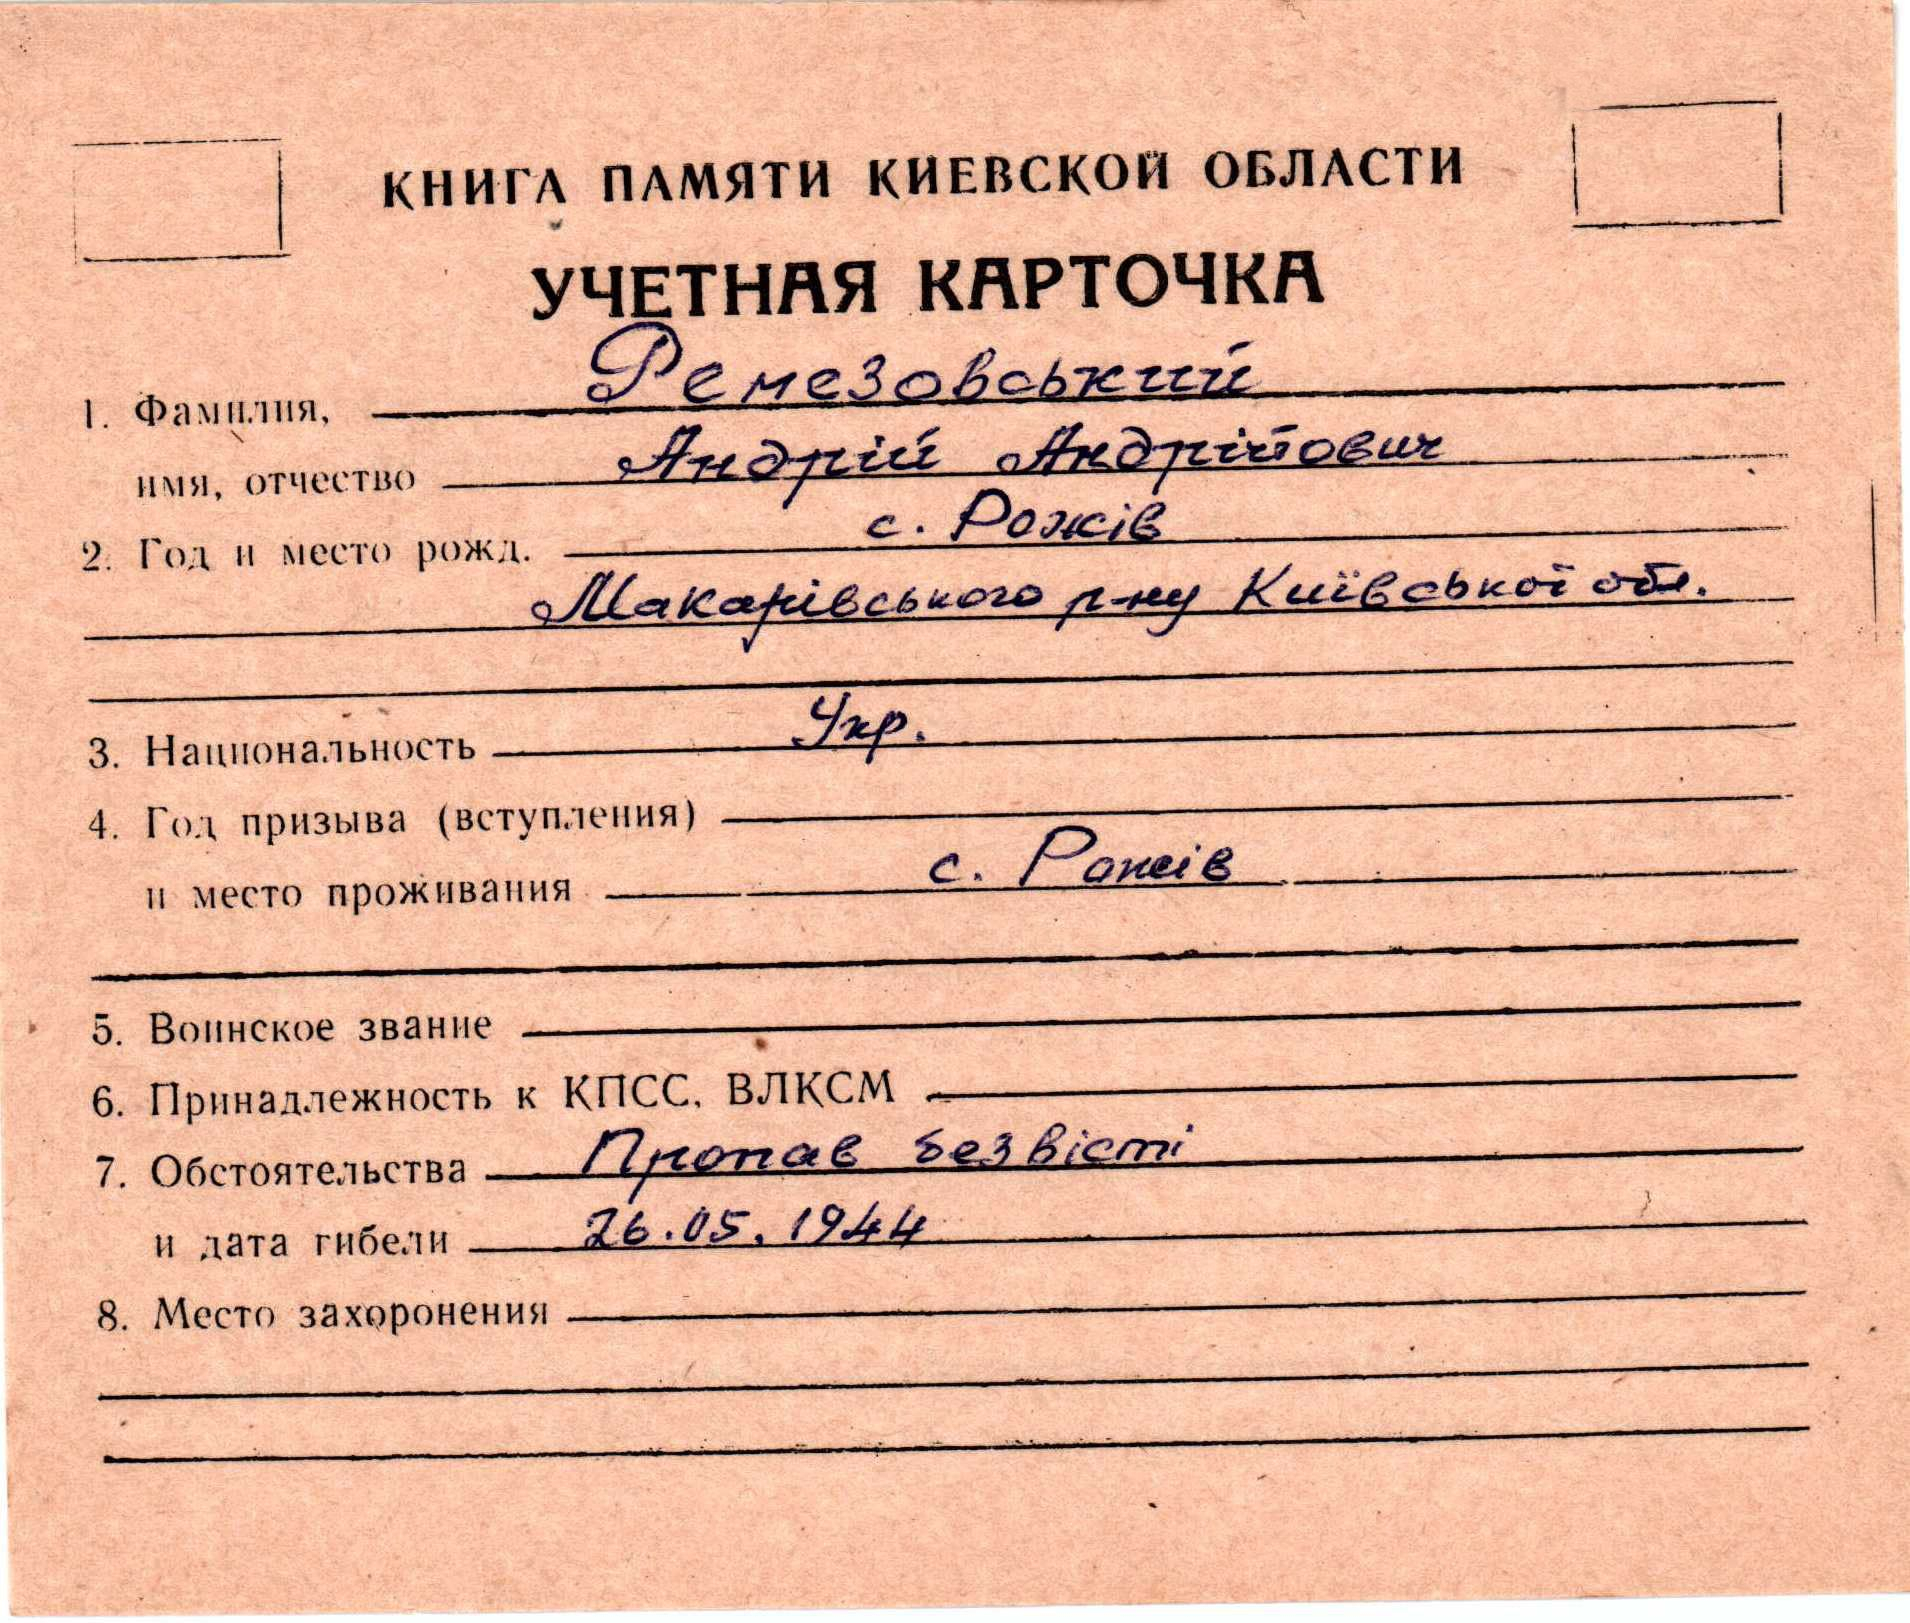 КНИГА ПАМЯТИ КИЕВСКОЙ ОБЛАСТИ
УЧЕТНАЯ КАРТОЧКА
1. Фамилия, Ремезовський
имя, отчество Андрій Андрійович
2. Год и место рожд. с. Рожів
Макарівського р-ну Київської обл.
3. Национальность Укр.
4. Год призыва (вступления)
и место проживания с. Рожів
5. Воинское звание
6. Принадлежность к КПСС, ВЛКСМ
7. Обстоятельства Пропав безвісті
и дата гибели 26.05.1944
8. Место захоронения